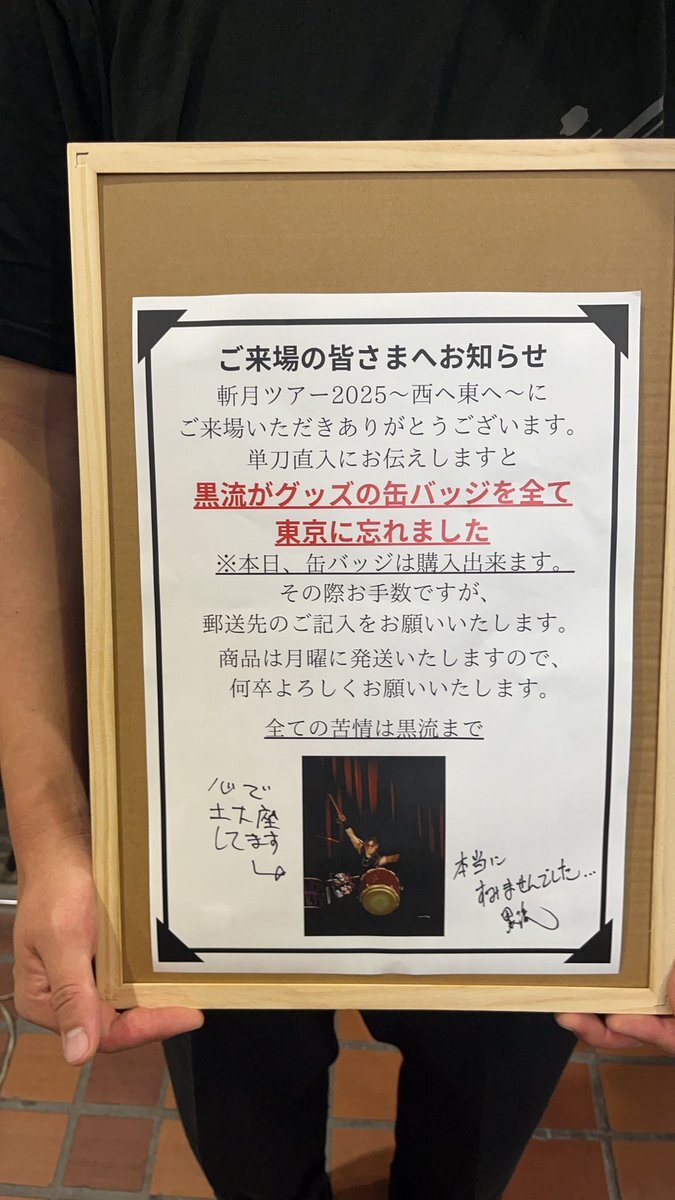 ご来場の皆さまへお知らせ
斬月ツアー2025～西へ東へ～に
ご来場いただきありがとうございます。
単刀直入にお伝えしますと
黒流がグッズの缶バッジを全て
東京に忘れました
※本日、缶バッジは購入出来ます。
その際お手数ですが、
郵送先のご記入をお願いいたします。
商品は月曜に発送いたしますので、
何卒よろしくお願いいたします。
全ての苦情は黒流まで
心で
土下座
してます
本当に
すみませんでした…
黒流